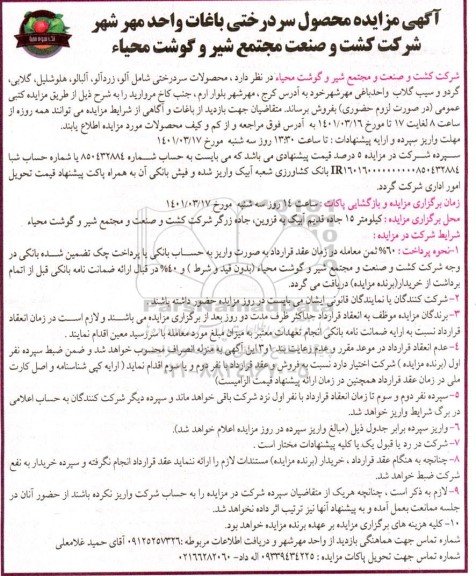 آگهی مزایده محصول سردرختی باغات واحد مهر شهر
شرکت کشت و صنعت مجتمع شیر و گوشت محیاء
شرکت کشت و صنعت و مجتمع شیر و گوشت محیاء در نظر دارد ، محصولات سردرختی شامل آلو، زردآلو، آلبالو، هلوشلیل، گلابی،
گردو و سیب گلاب واحدباغی مهرشهرخود به آدرس کرج ، مهرشهر بلوار ارم ، جنب کاخ مروارید را به شرح ذیل از طریق مزایده کتبی
عمومی (در صورت لزوم حضوری) بفروش برساند. متقاضیان جهت بازدید از باغات و آگاهی از شرایط مزایده می توانند همه روزه از
ساعت ۸ لغایت ۱۷ تا مورخ ۱۴۰۱/۰۳/۱۶ به آدرس فوق مراجعه و از کم و کیف محصولات مورد مزایده اطلاع یابند.
مهلت واریز سپرده و ارایه پیشنهادات : تا ساعت ۱۳:۳۰ روز سه شنبه مورخ ۱۴۰۱/۰۳/۱۷
سپرده شرکت در مزایده ۵ درصد قیمت پیشنهادی می باشد که می بایست به حساب شماره ۸۵۰۴۳۲۸۸۴ یا شماره حساب شبا
بانک کشاورزی شعبه آبیک واریز شده و فیش بانکی آن به همراه پاکت پیشنهاد قیمت تحویل
امور اداری شرکت گردد.
زمان برگزاری مزایده و بازگشایی پاکات : ساعت ۱۴ روز سه شنبه مورخ ۱۴۰۱/۰۳/۱۷
محل برگزاری مزایده : کیلومتر ۱۵ جاده قدیم آبیک به قزوین، جاده زرگر شرکت کشت و صنعت و مجتمع شیر و گوشت محیاء
شرایط شرکت در مزایده :
۱-نحوه پرداخت : ۶۰% ثمن معامله در زمان عقد قرارداد به صورت واریز به حساب بانکی یا پرداخت چک تضمین شده بانکی در
وجه شرکت کشت و صنعت و مجتمع شیر و گوشت محیاء (بدون قید و شرط ) و ۴۰% در قبال ارائه ضمانت نامه بانکی قبل از اتمام
برداشت از خریدار(برنده مزایده) دریافت می گردد.
۲- شرکت کنندگان یا نمایندگان قانونی ایشان می بایست در روز مزایده حضور داشته باشند.
۳- برندگان مزایده موظف به انعقاد قرارداد حداکثر ظرف مدت دو روز بعد از برگزاری مزایده می باشند و لازم است در زمان انعقاد
قرارداد نسبت به ارایه ضمانت نامه بانکی انجام تعهدات معتبر به میزان مبلغ مورد معامله با سررسید معین اقدام نمایند .
۴- عدم انعقاد قرارداد در موعد مقرر و عدم رعایت بند ۱ و ۳ این آگهی به منزله انصراف محسوب خواهد شد و ضمن ضبط سپرده نفر
اول (برنده مزایده ) شرکت اختیار دارد نسبت به فروش و عقد قرارداد با نفر دوم و یا سوم اقدام نماید ( ارایه کپی شناسنامه و اصل کارت
ملی در زمان عقد قرارداد همچنین در زمان ارائه پیشنهاد قیمت الزامیست)
۵- سپرده نفر دوم و سوم تا زمان انعقاد قرارداد با نفر اول نزد شرکت باقی خواهد ماند و سپرده دیگر شرکت کنندگان به حساب اعلامی
در برگ شرایط واریز خواهد شد.
۶- واریز سپرده برابر جدول ذیل (مبالغ واریز سپرده در روز مزایده اعلام خواهد شد).
۷- شرکت در رد یا قبول یک یا کلیه پیشنهادات مختار است .
۸- چنانچه به هنگام عقد قرارداد ، خریدار (برنده مزایده) مستندات لازم را ارائه ننماید عقد قرارداد انجام نگرفته و سپرده خریدار به نفع
شرکت ضبط خواهد شد.
۹- لازم به ذکر است ، چنانچه هریک از متقاضیان سپرده شرکت در مزایده را به حساب شرکت واریز نکرده باشند از حضور آنان در
جلسه ممانعت بعمل آمده و به پیشنهاد آنها نیز ترتیب اثر داده نخواهد شد.
۱۰- کلیه هزینه های برگزاری مزایده بر عهده برنده مزایده خواهد بود.
شماره تماس جهت هماهنگی بازدید از واحد مهرشهر و دریافت اطلاعات مربوطه :۰۹۱۲۵۲۵۷۳۲۶ آقای حمید غلامعلی
شماره تماس جهت تحویل پاکات مزایده : ۰۹۳۳۹۴۳۴۲۲۵ اله داد- ۰۲۱۶۶۲۸۲۰۶۰